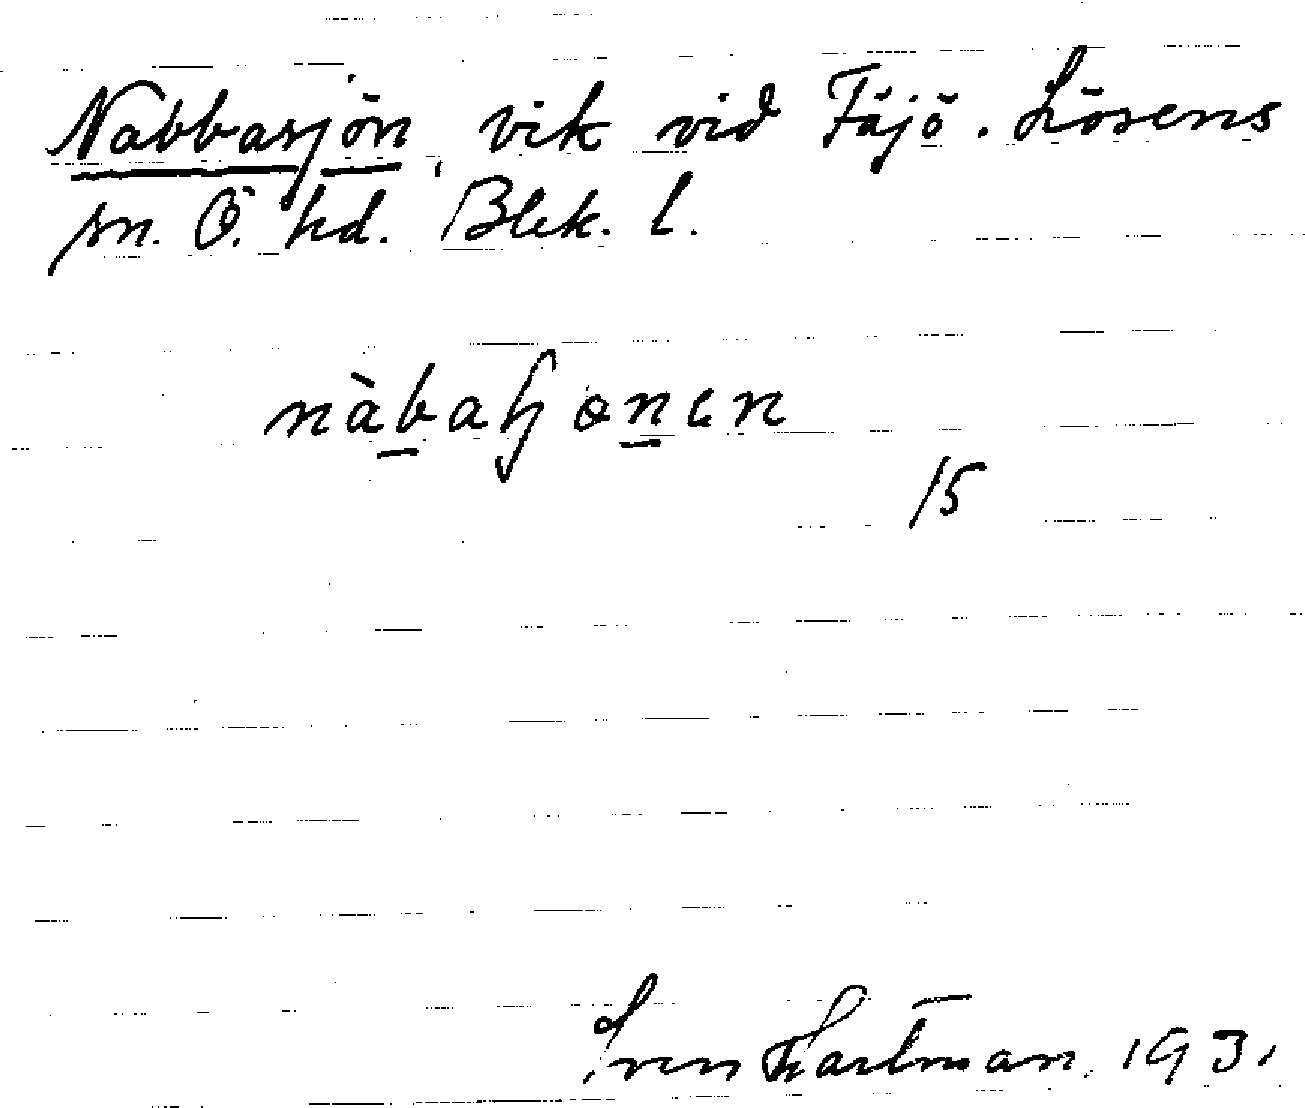 Nabbasjön, vik vid Fäjö. Lösens
sn. Ö. hd. Blek. l.
15
Sven Hartman. 1931